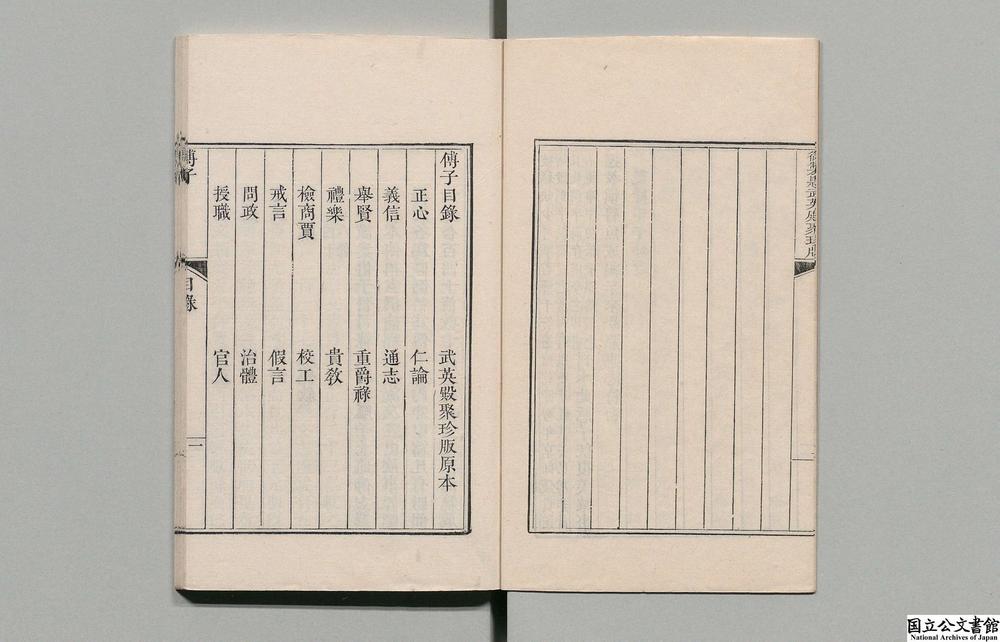 傅子目錄 武英殿聚珍版原本
正心 仁論
義信 通志
舉賢 重爵祿
禮樂 貴敎
檢商賈 校工
戒言 假言
問政 治體
授職 官人
傅子 目錄 一
武英殿聚珍版
国立公文書館
National Archives of Japan